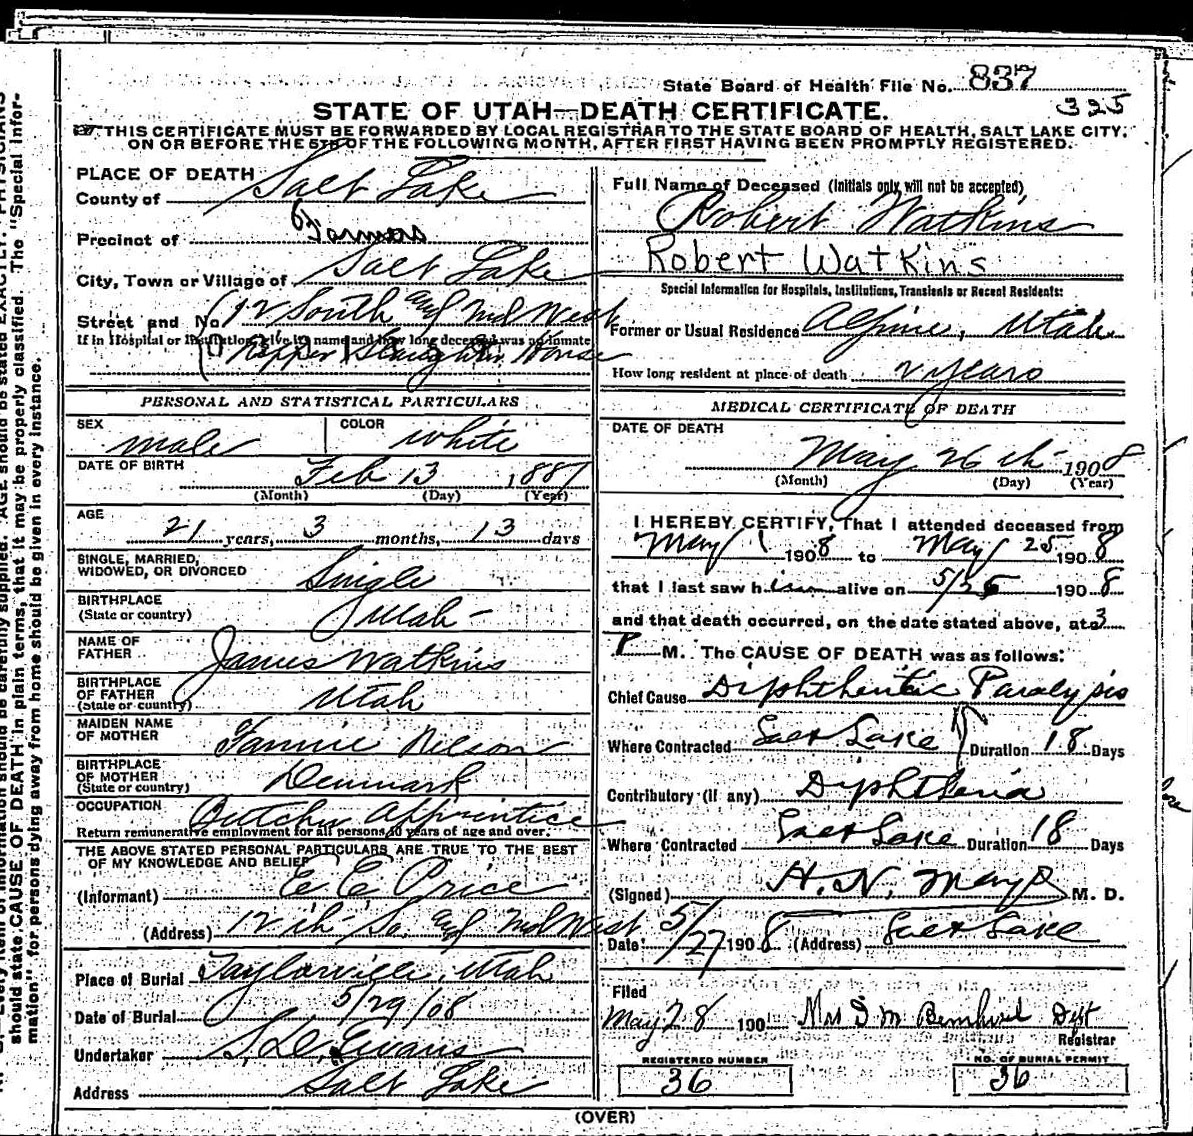 State Board of Health File No. 837
325
STATE OF UTAH—DEATH CERTIFICATE.
THIS CERTIFICATE MUST BE FORWARDED BY LOCAL REGISTRAR TO THE STATE BOARD OF HEALTH, SALT LAKE CITY,
ON OR BEFORE THE 5TH OF THE FOLLOWING MONTH, AFTER FIRST HAVING BEEN PROMPTLY REGISTERED.
PLACE OF DEATH
County of Salt Lake
Precinct of Farmers
City, Town or Village of Salt Lake
Street and No. 12 South and 2nd West
If in Hospital or Institution, give its name and how long deceased was an inmate
Slaughter House
PERSONAL AND STATISTICAL PARTICULARS
SEX male COLOR white
DATE OF BIRTH Feb 13 1887
(Month) (Day) (Year)
AGE 21 years, 3 months, 13 days
SINGLE, MARRIED,
WIDOWED, OR DIVORCED Single
BIRTHPLACE
(State or country) Utah
NAME OF
FATHER James Watkins
BIRTHPLACE
OF FATHER
(State or country) Utah
MAIDEN NAME
OF MOTHER Fannie Nelson
BIRTHPLACE
OF MOTHER
(State or country) Denmark
OCCUPATION Butcher Apprentice
Return remunerative employment for all persons 10 years of age and over.
THE ABOVE STATED PERSONAL PARTICULARS ARE TRUE TO THE BEST
OF MY KNOWLEDGE AND BELIEF
(Informant) E. E. Price
(Address) 12th So. and 2nd West
Place of Burial Taylorsville, Utah
Date of Burial 5/29/08
Undertaker S. D. Evans
Address Salt Lake
Full Name of Deceased (Initials only will not be accepted)
Robert Watkins
Robert Watkins
Special Information for Hospitals, Institutions, Transients or Recent Residents:
Former or Usual Residence Alpine, Utah
How long resident at place of death 2 years
MEDICAL CERTIFICATE OF DEATH
DATE OF DEATH
May 26th 1908
(Month) (Day) (Year)
I HEREBY CERTIFY, That I attended deceased from
May 1 1908 to May 25 1908
that I last saw him alive on 5/25 1908
and that death occurred, on the date stated above, at 3
P M. The CAUSE OF DEATH was as follows:
Chief Cause Diphtheritic Paralysis
Where Contracted Salt Lake Duration 18 Days
Contributory (if any) Diphtheria
Where Contracted Salt Lake Duration 18 Days
(Signed) H. N. Mayo M. D.
Date 5/27 1908 (Address) Salt Lake
Filed
May 28 190 Mrs Dept
Registrar
REGISTERED NUMBER
36
NO. OF BURIAL PERMIT
36
(OVER)
AGE should be stated EXACTLY. PHYSICIANS
should state CAUSE OF DEATH in plain terms, that it may be properly classified. The "Special Infor-
mation" for persons dying away from home should be given in every instance.